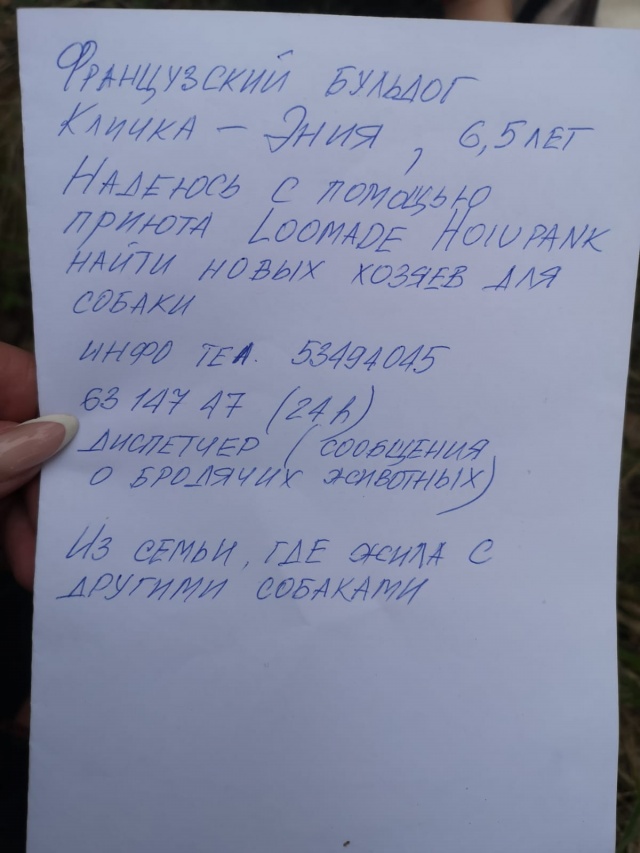 Французский бульдог
Кличка – Эния, 6,5 лет
Надеюсь с помощью
приюта LOOMADE HOIUPANK
найти новых хозяев для
собаки
инфо тел. 53494045
63 147 47 (24 h)
диспетчер (сообщения
о бродячих животных)
Из семьи, где жила с
другими собаками